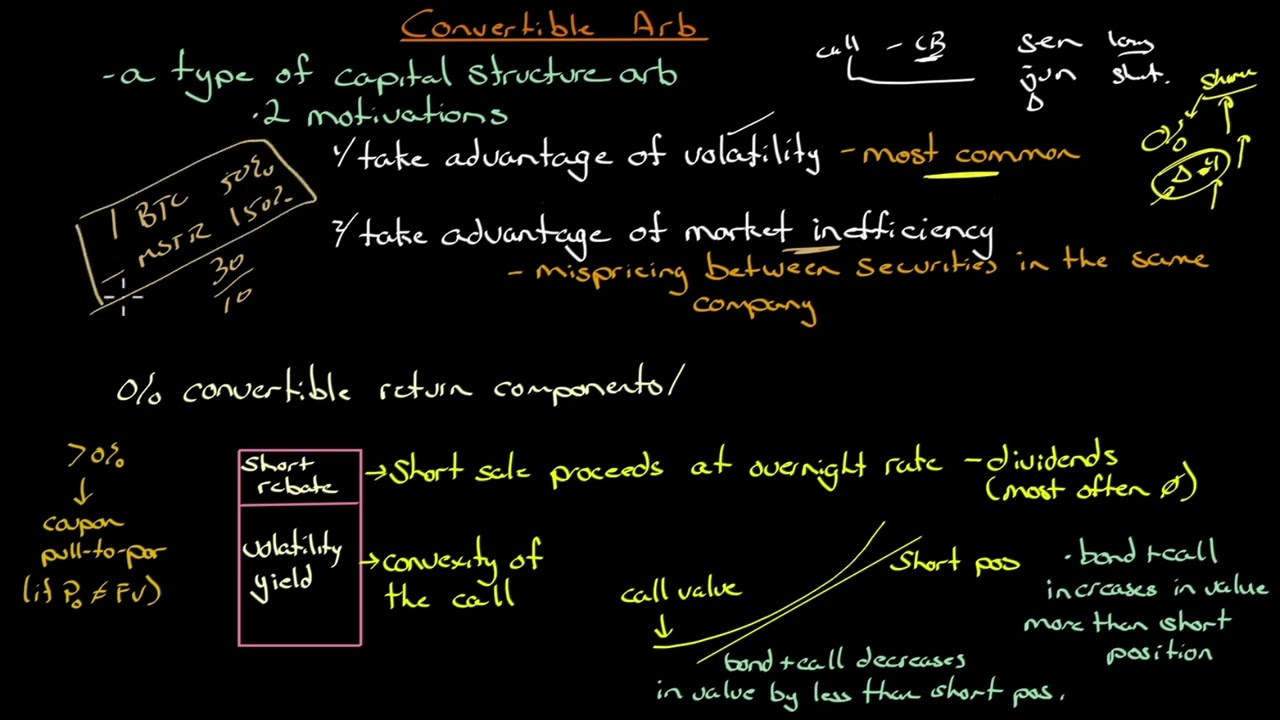 Convertible Arb
-a type of capital structure arb
·2 motivations
1/ take advantage of volatility - most common
2/ take advantage of market inefficiency
- mispricing between securities in the same
company
call - CB
sen long
jun short.
Δ
share
0%
Δ
1 BTC 50%
- MSTR 150%
30
10
0% convertible return components/
>0%
↓
coupon
pull-to-par
(if P₀ ≠ FV)
short
rebate
→ short sale proceeds at overnight rate - dividends
(most often ∅)
volatility
yield
→ convexity of
the call
call value
↓
short pos
· bond + call
increases in value
more than short
position
bond + call decreases
in value by less than short pos.